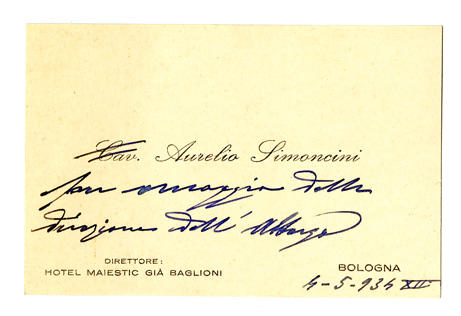 Cav. Aurelio Simoncini
per omaggio della
direzione dell' Albergo
DIRETTORE:
HOTEL MAIESTIC GIÀ BAGLIONI
BOLOGNA
4-5-934 XII